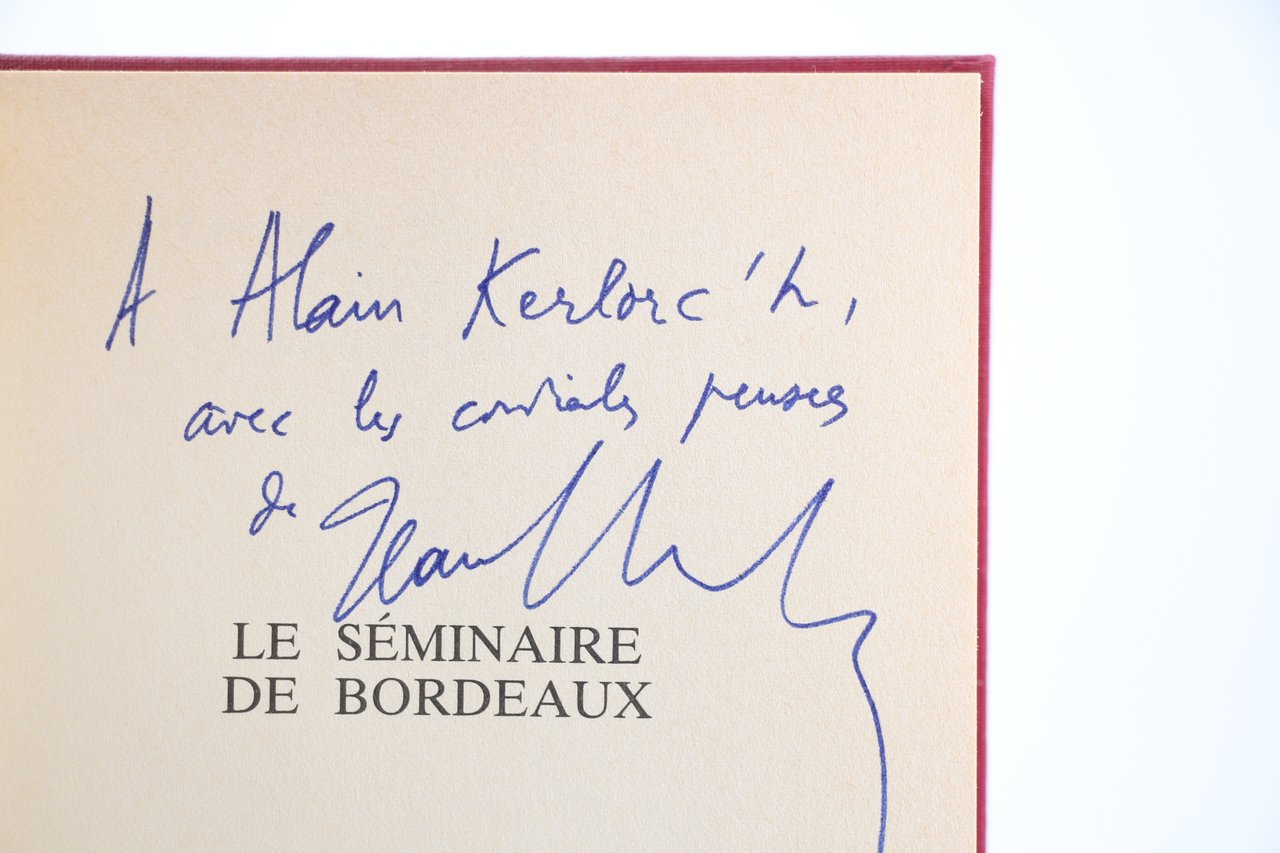 A Alain Kerlorc'h,
avec les cordiales pensées
de Jean
LE SÉMINAIRE
DE BORDEAUX